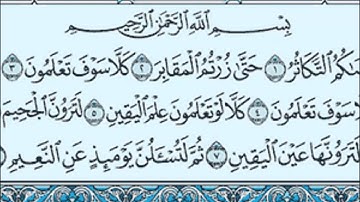 بِسْمِ اللَّهِ الرَّحْمَٰنِ الرَّحِيمِ
التَّكَاثُرُ ١ حَتَّىٰ زُرْتُمُ الْمَقَابِرَ ٢ كَلَّا سَوْفَ تَعْلَمُونَ ٣
سَوْفَ تَعْلَمُونَ ٤ كَلَّا لَوْ تَعْلَمُونَ عِلْمَ الْيَقِينِ ٥ لَتَرَوُنَّ الْجَحِيمَ
لَتَرَوُنَّهَا عَيْنَ الْيَقِينِ ٧ ثُمَّ لَتُسْـَٔلُنَّ يَوْمَئِذٍ عَنِ النَّعِيمِ